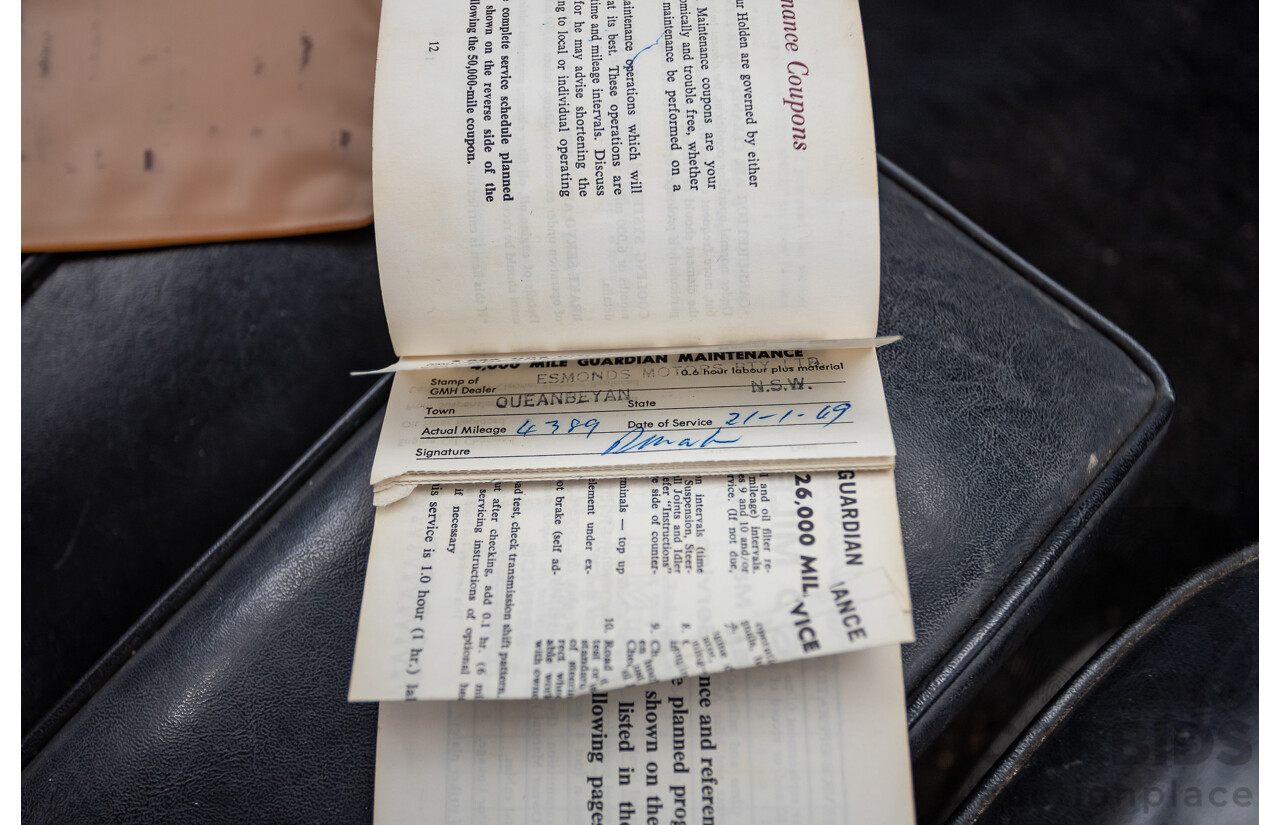 nance Coupons
ur Holden are governed by either
. Maintenance coupons are your
omically and trouble free, whether
maintenance be performed on a
aintenance operations which will
at its best. These operations are
ime and mileage intervals. Discuss
for he may advise shortening the
ng to local or individual operating
complete service schedule planned
shown on the reverse side of the
llowing the 50,000-mile coupon.
12
4,000 MILE GUARDIAN MAINTENANCE
Stamp of
GMH Dealer
ESMONDS MOTORS PTY LTD
0.6 hour labour plus material
Town QUEANBEYAN State N.S.W.
Actual Mileage 4389 Date of Service 21-1-69
Signature
GUARDIAN
IANCE
26,000 MIL
VICE
l and oil filter re-
mileage) intervals.
es 9 and 10 and/or
rvice. (If not due,
n intervals (time
Suspension, Steer-
ll Joints and Idler
efer "Instructions"
e side of counter-
rminals — top up
lement under ex-
ot brake (self ad-
ad test, check transmission shift pattern.
ut after checking, add 0.1 hr. (6 mi
servicing instructions of optional he
if necessary
is service is 1.0 hour (1 hr.) la
8.
9.
10. Road
test or
standar
of
rect whe
able wor
with owne
nce and referen
e planned prog
shown on the
listed in the
llowing pages
BIDS
onplace